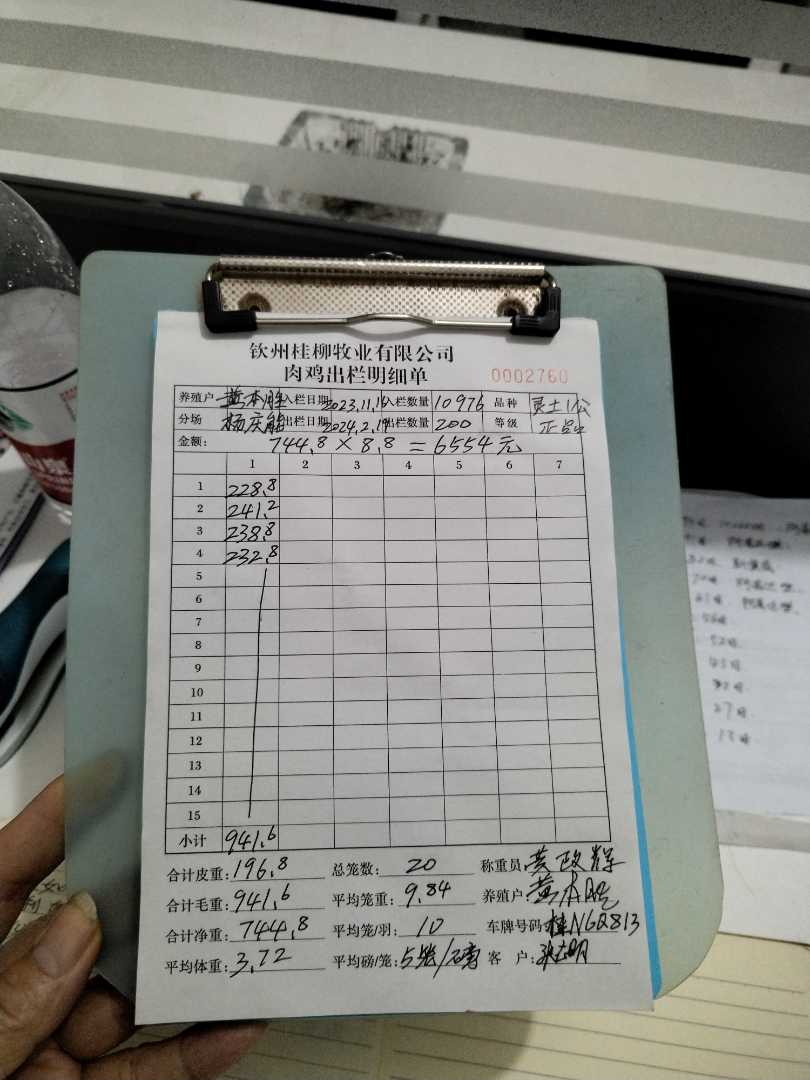 钦州桂柳牧业有限公司
肉鸡出栏明细单 0002760
养殖户 黄本胜 入栏日期 2023.11.15 入栏数量 10976 品种 灵土1公
分场 杨庆能 出栏日期 2024.2.19 出栏数量 200 等级 正品
金额: 744.8 × 8.8 = 6554元
1 2 3 4 5 6 7
1 228.8
2 241.2
3 238.8
4 232.8
5
6
7
8
9
10
11
12
13
14
15
小计 941.6
合计皮重: 196.8 总笼数: 20 称重员 黄政辉
合计毛重: 941.6 平均笼重: 9.84 养殖户 黄本胜
合计净重: 744.8 平均笼/羽: 10 车牌号码 桂NGQ813
平均体重: 3.72 平均磅/笼: 5笼/磅 客 户: